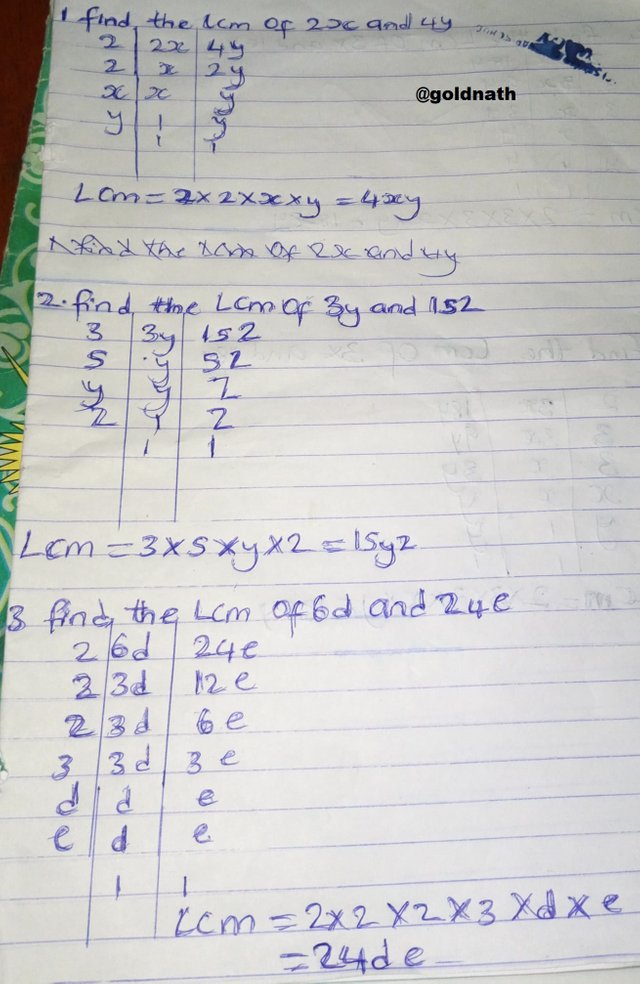 1 find the Lcm of 2x and 4y
2 2x 4y
2 x 2y
x x y
y 1 y
1 1
@goldnath
Lcm = 2 x 2 x x x y = 4xy
find the Lcm of 2x and 4y
2. find the Lcm of 3y and 15z
3 3y 15z
5 y 5z
y y z
z 1 z
1 1
Lcm = 3 x 5 x y x z = 15yz
3 find the Lcm of 6d and 24e
2 6d 24e
2 3d 12e
2 3d 6e
3 3d 3e
d d e
e d e
1 1
Lcm = 2 x 2 x 2 x 3 x d x e
= 24de